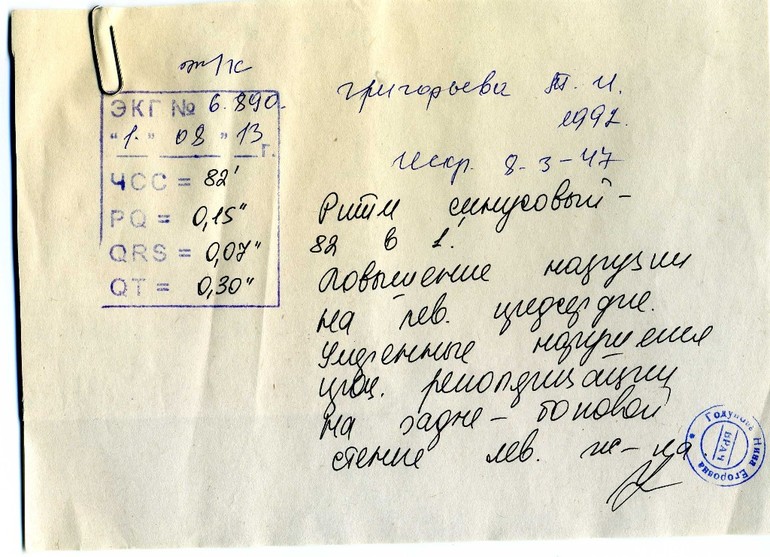 ж/к
ЭКГ № 6.890.
"1." 08 "13 г.
ЧСС = 82'
PQ = 0,15"
QRS = 0,07"
QT = 0,30"
Григорьева Т. И.
1992.
8-3-47
Ритм синусовый -
82 в 1'.
Повышение нагрузки
на лев. предсердие.
Умеренные нарушения
проц. реполяризации
на задне-боковой
стенке лев. ж-ка
Голунова Нина Егоровна
ВРАЧ